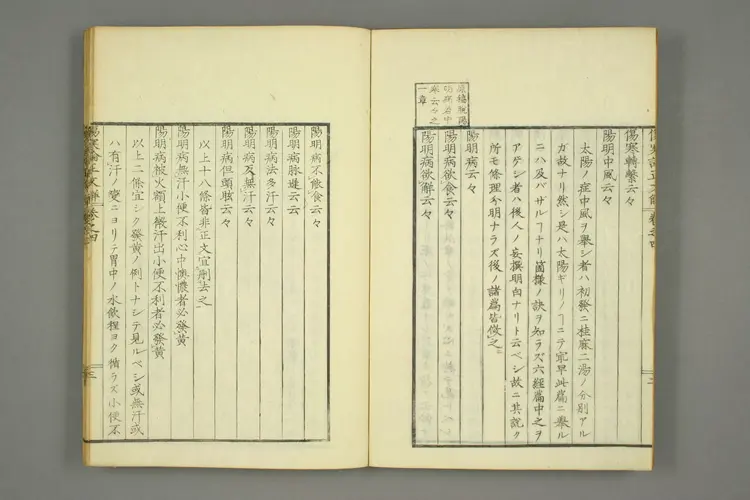 傷寒轉繫云々
陽明中風云々
太陽ノ症中風ヲ擧シ者ハ初發ニ桂麻二湯ノ分別アル
ガ故ナリ然シ是ハ太陽ギリノヿニテ宛早此篇ニ擧ル
ニハ及バザルヿナリ箇様ノ訣ヲ知ラズ六經篇中之ヲ
アゲシ者ハ後人ノ妄撰明白ナリト云ベシ故ニ其説ク
所モ條理分明ナラズ後ノ諸篇皆倣之
陽明病云々
陽明病欲食云々
陽明病欲解云々
陽明病不能食云々
陽明病脉遲云云
陽明病法多汗云々
陽明病反無汗云々
陽明病但頭眩云々
以上十八條皆非正文宜刪去之
陽明病無汗小便不利心中懊憹者必發黄
陽明病被火額上微汗出小便不利者必發黄
以上二條宜シク發黄ノ例トナシテ見ルベシ或無汗或
ハ有汗ノ變ニヨリテ胃中ノ水飲裡ヨク循ラズ小便不